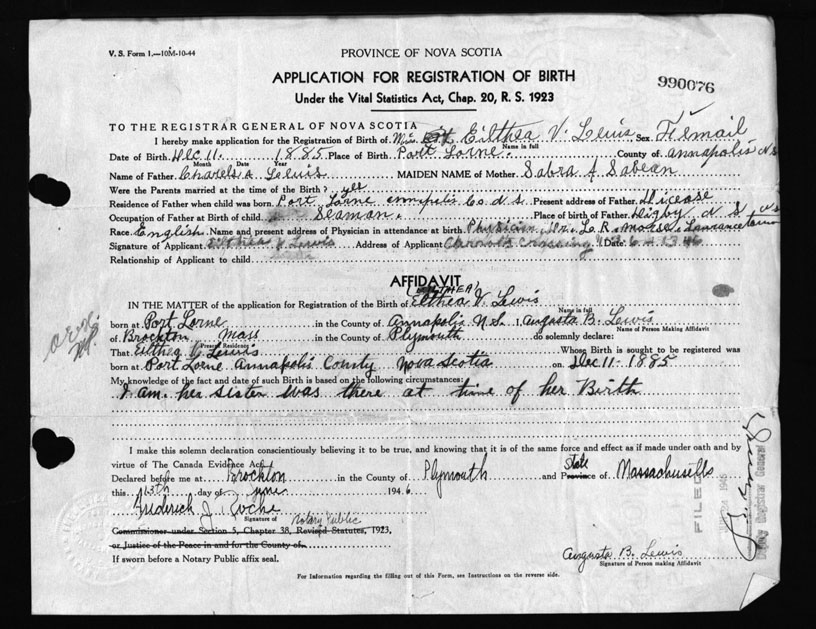 V. S. Form 1.—10M-10-44
PROVINCE OF NOVA SCOTIA
990076
APPLICATION FOR REGISTRATION OF BIRTH
Under the Vital Statistics Act, Chap. 20, R. S. 1923
TO THE REGISTRAR GENERAL OF NOVA SCOTIA
I hereby make application for the Registration of Birth of Miss Eilthea V. Lewis Sex Femail
Name in full
Date of Birth Dec 11. 1885 Place of Birth Port Lorne. County of annapolis N S
Month Day Year
Name of Father Charels A Lewis MAIDEN NAME of Mother Sabra A Sabean
Were the Parents married at the time of the Birth? yes
Residence of Father when child was born Port Lorne annapolis Co. N. S. Present address of Father Dicease
Occupation of Father at Birth of child Seaman. Place of birth of Father Digby N S
Race English Name and present address of Physician in attendance at birth Physician Dr. L. R. morse Lawrancetown
Signature of Applicant Eilthea V Lewis Address of Applicant Crossing Date
Relationship of Applicant to child
AFFIDAVIT
(EILTHEA)
IN THE MATTER of the application for Registration of the Birth of Eilthea V. Lewis
Name in full
born at Port Lorne in the County of Annapolis N.S. I, Augusta B. Lewis
Name of Person Making Affidavit
of Brockton Mass in the County of Plymouth do solemnly declare:
Present Residence
That Eilthea V. Lewis Whose Birth is sought to be registered was
born at Port Lorne Annapolis County Nova Scotia on Dec 11-1885
My knowledge of the fact and date of such Birth is based on the following circumstances:
I am her sister was there at time of her Birth
I make this solemn declaration conscientiously believing it to be true, and knowing that it is of the same force and effect as if made under oath and by
virtue of The Canada Evidence Act.
Declared before me at Brockton in the County of Plymouth and State Province of Massachusetts
this 13th day of June 1946
Frederick J. Roche
Signature of Notary Public
Commissioner under Section 5, Chapter 38, Revised Statutes, 1923,
or Justice of the Peace in and for the County of
If sworn before a Notary Public affix seal.
Augusta B. Lewis
Signature of Person making Affidavit
For Information regarding the filling out of this Form, see Instructions on the reverse side.
FILED
1946
Deputy Registrar General